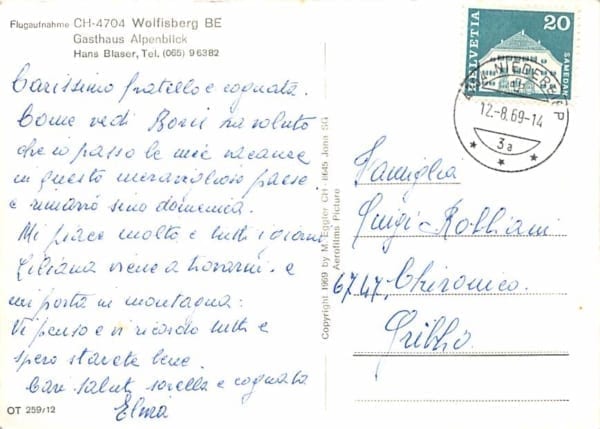 Flugaufnahme CH-4704 Wolfisberg BE
Gasthaus Alpenblick
Hans Blaser, Tel. (065) 9 63 82
Carissimo fratello e cognata.
Come vedi Boris ha voluto
che io passo le mie vacanze
in questo meraviglioso paese
e rimarrò sino domenica.
Mi piace molto, e tutti i giorni
Liliana viene a trovarmi e
mi porta in montagna.
Vi penso e vi ricordo tutti e
spero starete bene.
Cari saluti sorella e cognata
Elvira
OT 259/12
Copyright 1969 by M. Eggler CH-8645 Jona SG
Aerofilms Picture
HELVETIA
20
SAMEDAN
12.-8.69-14
3a
Famiglia
Luigi Robbiani
6747 Chironico
Gribbio